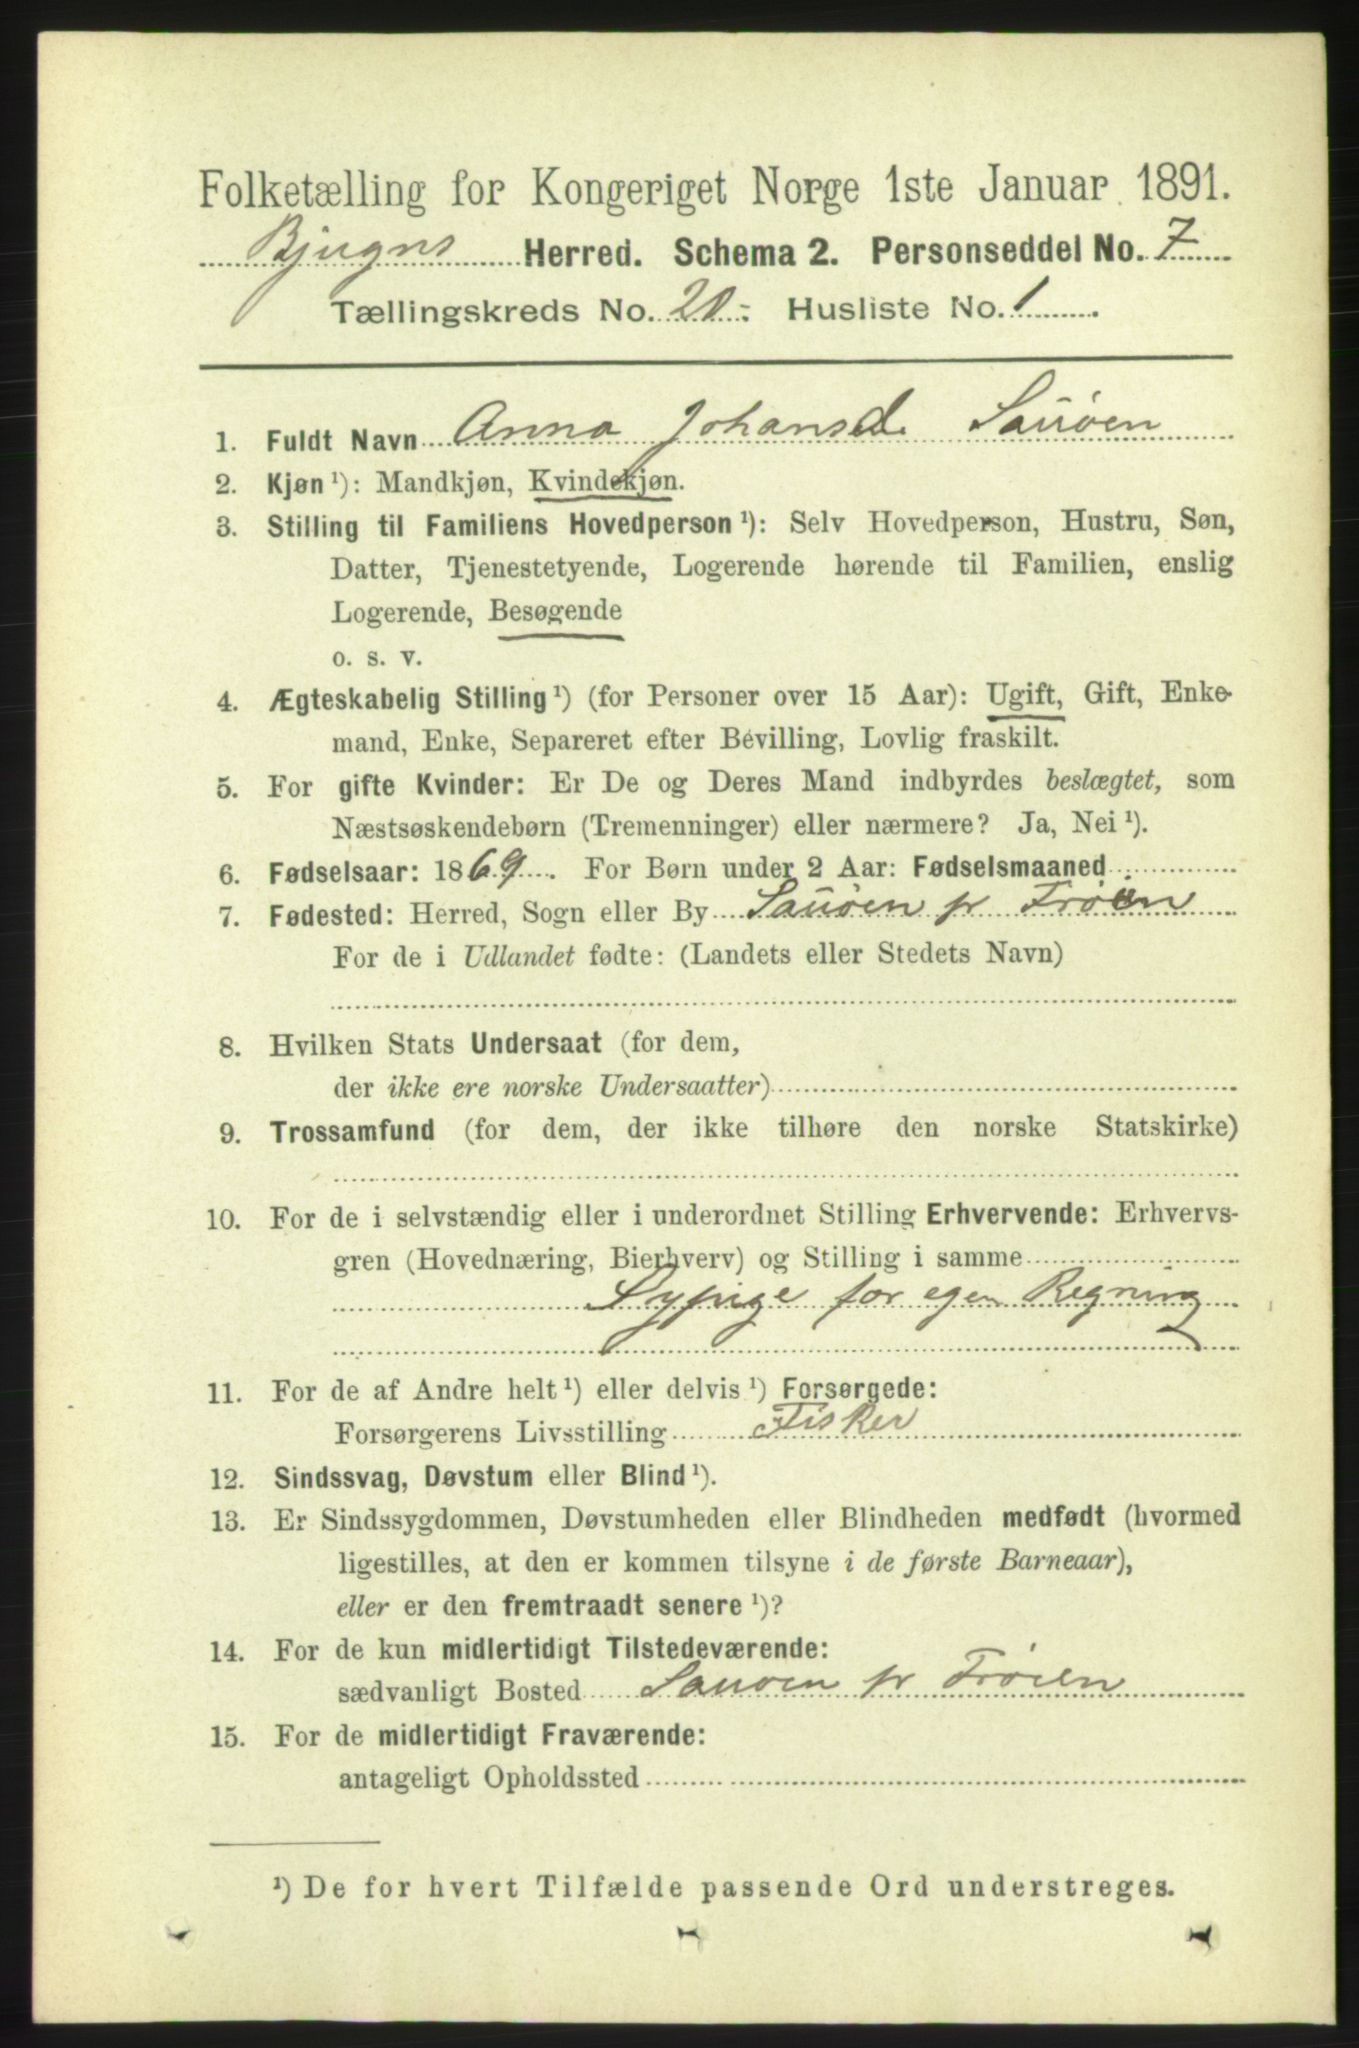 Folketælling for Kongeriget Norge 1ste Januar 1891.
Bjugns Herred. Schema 2. Personseddel No. 7
Tællingskreds No. 20. Husliste No. 1
1. Fuldt Navn Anna Johansd. Sauøen
2. Kjøn ¹): Mandkjøn, Kvindekjøn.
3. Stilling til Familiens Hovedperson ¹): Selv Hovedperson, Hustru, Søn,
Datter, Tjenestetyende, Logerende hørende til Familien, enslig
Logerende, Besøgende
o. s. v.
4. Ægteskabelig Stilling ¹) (for Personer over 15 Aar): Ugift, Gift, Enke-
mand, Enke, Separeret efter Bevilling, Lovlig fraskilt.
5. For gifte Kvinder: Er De og Deres Mand indbyrdes beslægtet, som
Næstsøskendebørn (Tremenninger) eller nærmere? Ja, Nei ¹).
6. Fødselsaar: 1869. For Børn under 2 Aar: Fødselsmaaned
7. Fødested: Herred, Sogn eller By Sauøen pr Frøien
For de i Udlandet fødte: (Landets eller Stedets Navn)
8. Hvilken Stats Undersaat (for dem,
der ikke ere norske Undersaatter)
9. Trossamfund (for dem, der ikke tilhøre den norske Statskirke)
10. For de i selvstændig eller i underordnet Stilling Erhvervende: Erhvervs-
gren (Hovednæring, Bierhverv) og Stilling i samme
Sypige for egen Regning
11. For de af Andre helt ¹) eller delvis ¹) Forsørgede:
Forsørgerens Livsstilling Fisker
12. Sindssvag, Døvstum eller Blind ¹).
13. Er Sindssygdommen, Døvstumheden eller Blindheden medfødt (hvormed
ligestilles, at den er kommen tilsyne i de første Barneaar),
eller er den fremtraadt senere ¹)?
14. For de kun midlertidigt Tilstedeværende:
sædvanligt Bosted Sauøen pr Frøien
15. For de midlertidigt Fraværende:
antageligt Opholdssted
¹) De for hvert Tilfælde passende Ord understreges.